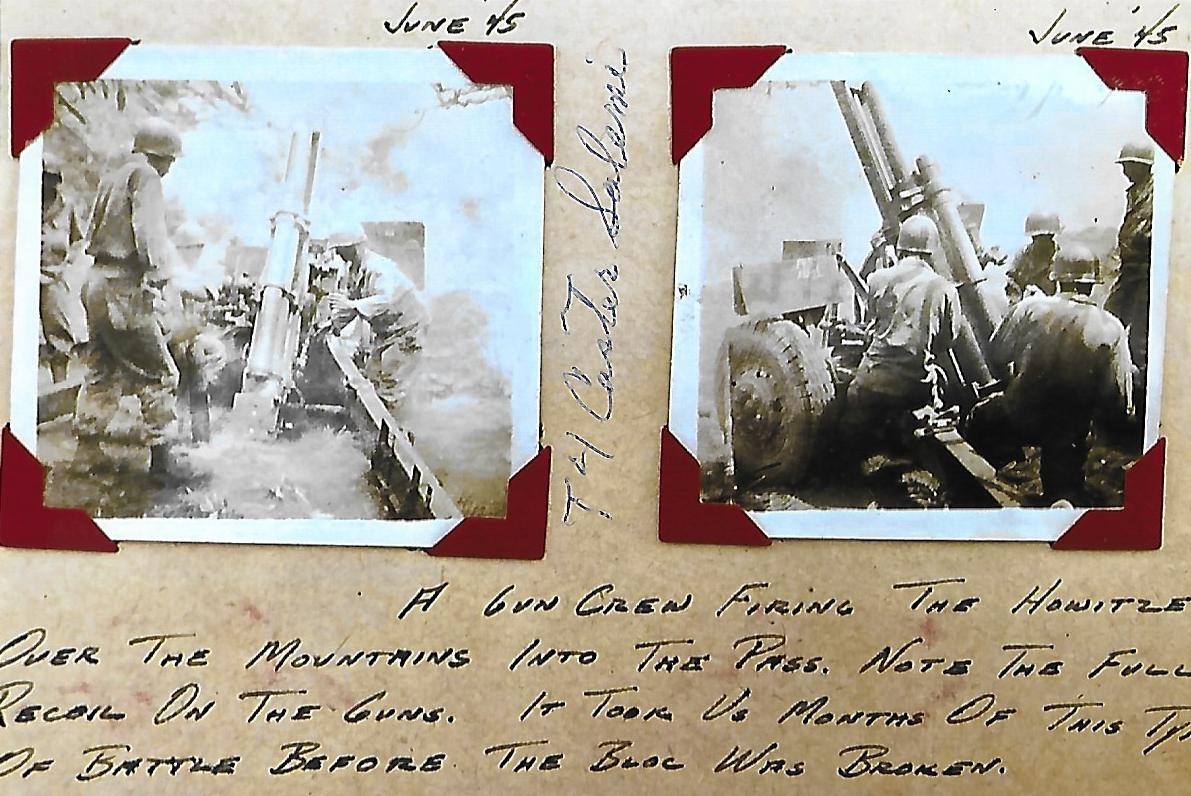 JUNE '45
JUNE '45
T4 Carter Salemi
A GUN CREW FIRING THE HOWITZE
OVER THE MOUNTAINS INTO THE PASS. NOTE THE FULL
RECOIL ON THE GUNS. IT TOOK US MONTHS OF THIS TY
OF BATTLE BEFORE THE BLOC WAS BROKEN.